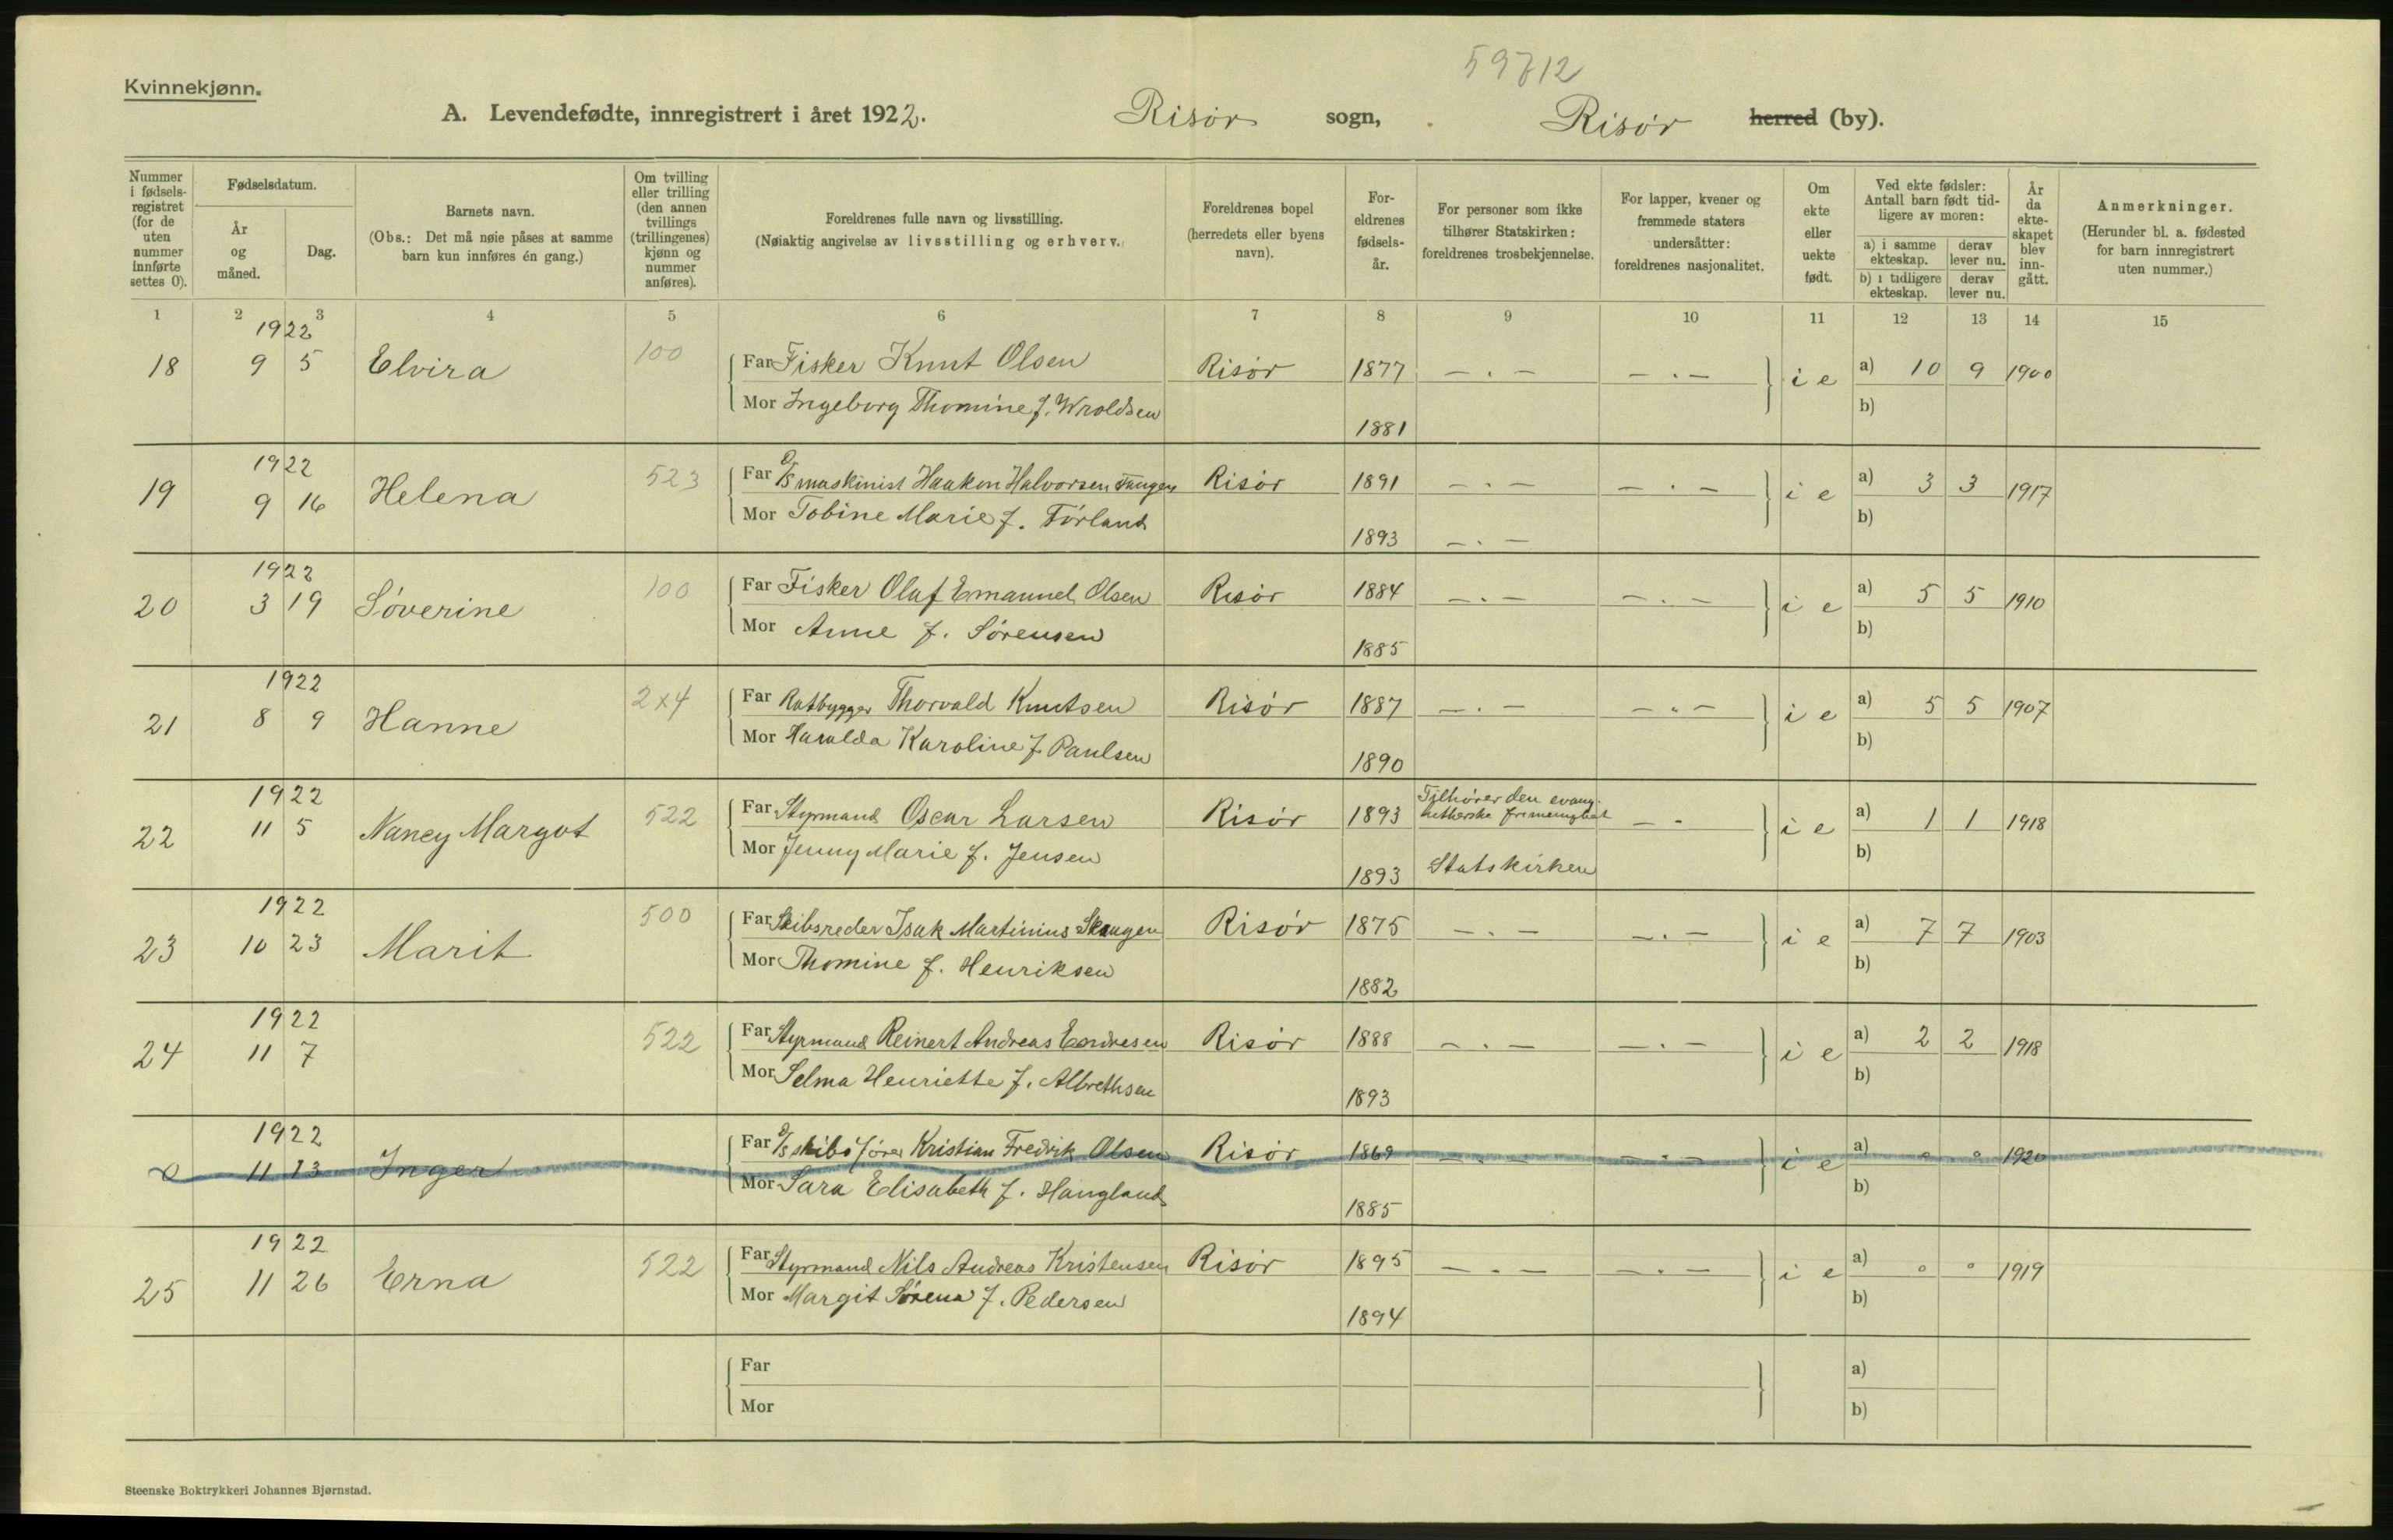 59712
Kvinnekjønn.
A. Levendefødte, innregistrert i året 1922. Risør sogn, Risør herred (by).
Nummer i fødsels-registret (for de uten nummer innførte settes 0).
Fødselsdatum.
År og måned.
Dag.
Barnets navn.
(Obs.: Det må nøie påses at samme barn kun innføres én gang.)
Om tvilling eller trilling (den annen tvillings (trillingenes) kjønn og nummer anføres).
Foreldrenes fulle navn og livsstilling.
(Nøiaktig angivelse av livsstilling og erhverv.)
Foreldrenes bopel (herredets eller byens navn).
For-eldrenes fødsels-år.
For personer som ikke tilhører Statskirken: foreldrenes trosbekjennelse.
For lapper, kvener og fremmede staters undersåtter: foreldrenes nasjonalitet.
Om ekte eller uekte født.
Ved ekte fødsler: Antall barn født tid-ligere av moren:
a) i samme ekteskap. derav lever nu.
b) i tidligere ekteskap. derav lever nu.
År da ekte-skapet blev inn-gått.
Anmerkninger.
(Herunder bl. a. fødested for barn innregistrert uten nummer.)
1 2 3 4 5 6 7 8 9 10 11 12 13 14 15
1922
18 9 5 Elvira 100 Far Fisker Knut Olsen Risør 1877 — . — — . — i e a) 10 9 1900
Mor Ingeborg Thomine f. Wroldsen 1881 b)
1922
19 9 16 Helena 523 Far D/S maskinist Haakon Halvorsen Tangen Risør 1891 — . — — . — i e a) 3 3 1917
Mor Tobine Marie f. Førland 1893 — . — b)
1922
20 3 19 Søverine 100 Far Fisker Oluf Emanuel Olsen Risør 1884 — . — — . — i e a) 5 5 1910
Mor Anne f. Sørensen 1885 b)
1922
21 8 9 Hanne 2x4 Far Ratbygger Thorvald Knutsen Risør 1887 — . — — . — i e a) 5 5 1907
Mor Haralda Karoline f. Paulsen 1890 b)
1922
22 11 5 Nancy Margot 522 Far Styrmand Oscar Larsen Risør 1893 Tilhører den evang. lutherske frimenighet — . i e a) 1 1 1918
Mor Jenny Marie f. Jensen 1893 Statskirken b)
1922
23 10 23 Marit 500 Far Skibsreder Isak Martinius Skaugen Risør 1875 — . — — . — i e a) 7 7 1903
Mor Thomine f. Henriksen 1882 b)
1922
24 11 7 522 Far Styrmand Reinert Andreas Endresen Risør 1888 — . — — . — i e a) 2 2 1918
Mor Selma Henriette f. Albrethsen 1893 b)
1922
0 11 13 Inger Far D/S skibsfører Kristian Fredrik Olsen Risør 1869 — . — — . — i e a) 0 0 1920
Mor Sara Elisabeth f. Haugland 1885 b)
1922
25 11 26 Erna 522 Far Styrmand Nils Andreas Kristensen Risør 1895 — . — — . — i e a) 0 0 1919
Mor Margit Sørena f. Pedersen 1894 b)
Far a)
Mor b)
Steenske Boktrykkeri Johannes Bjørnstad.